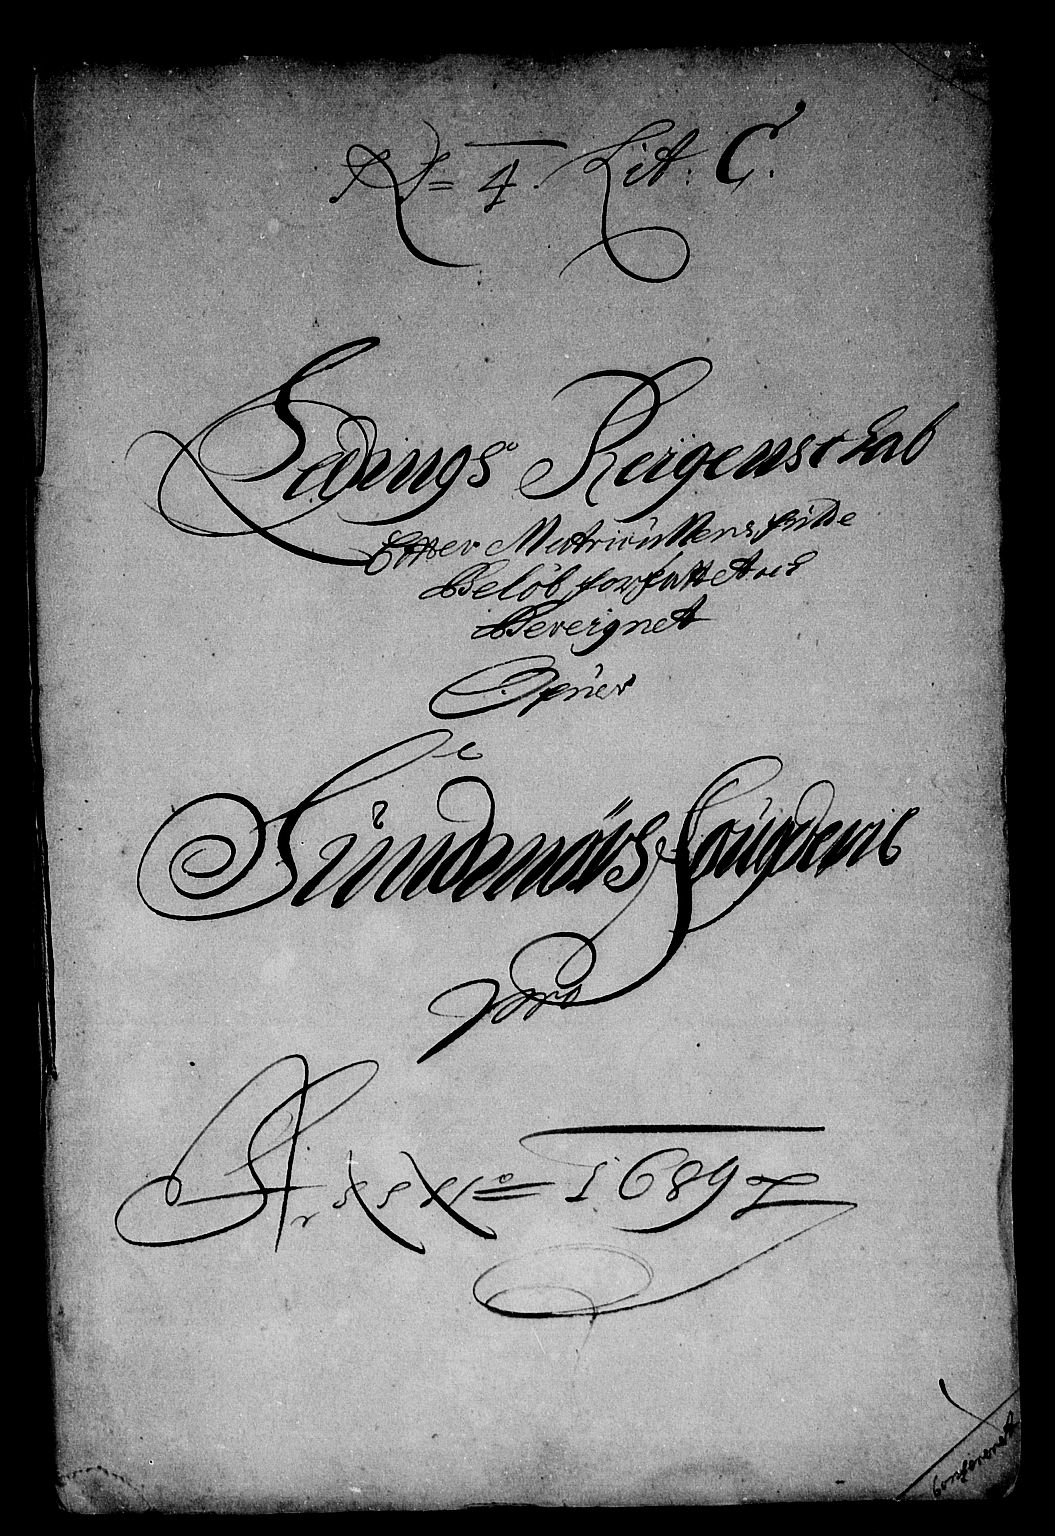 No= 4. Lit: C.
Ledings Reigenschab
Efter Matricullens fulde
Beløb forfattet och
Bereignet
Ofuer
Sundmørs Fougderie
pro
Anno= 1689
Confereret